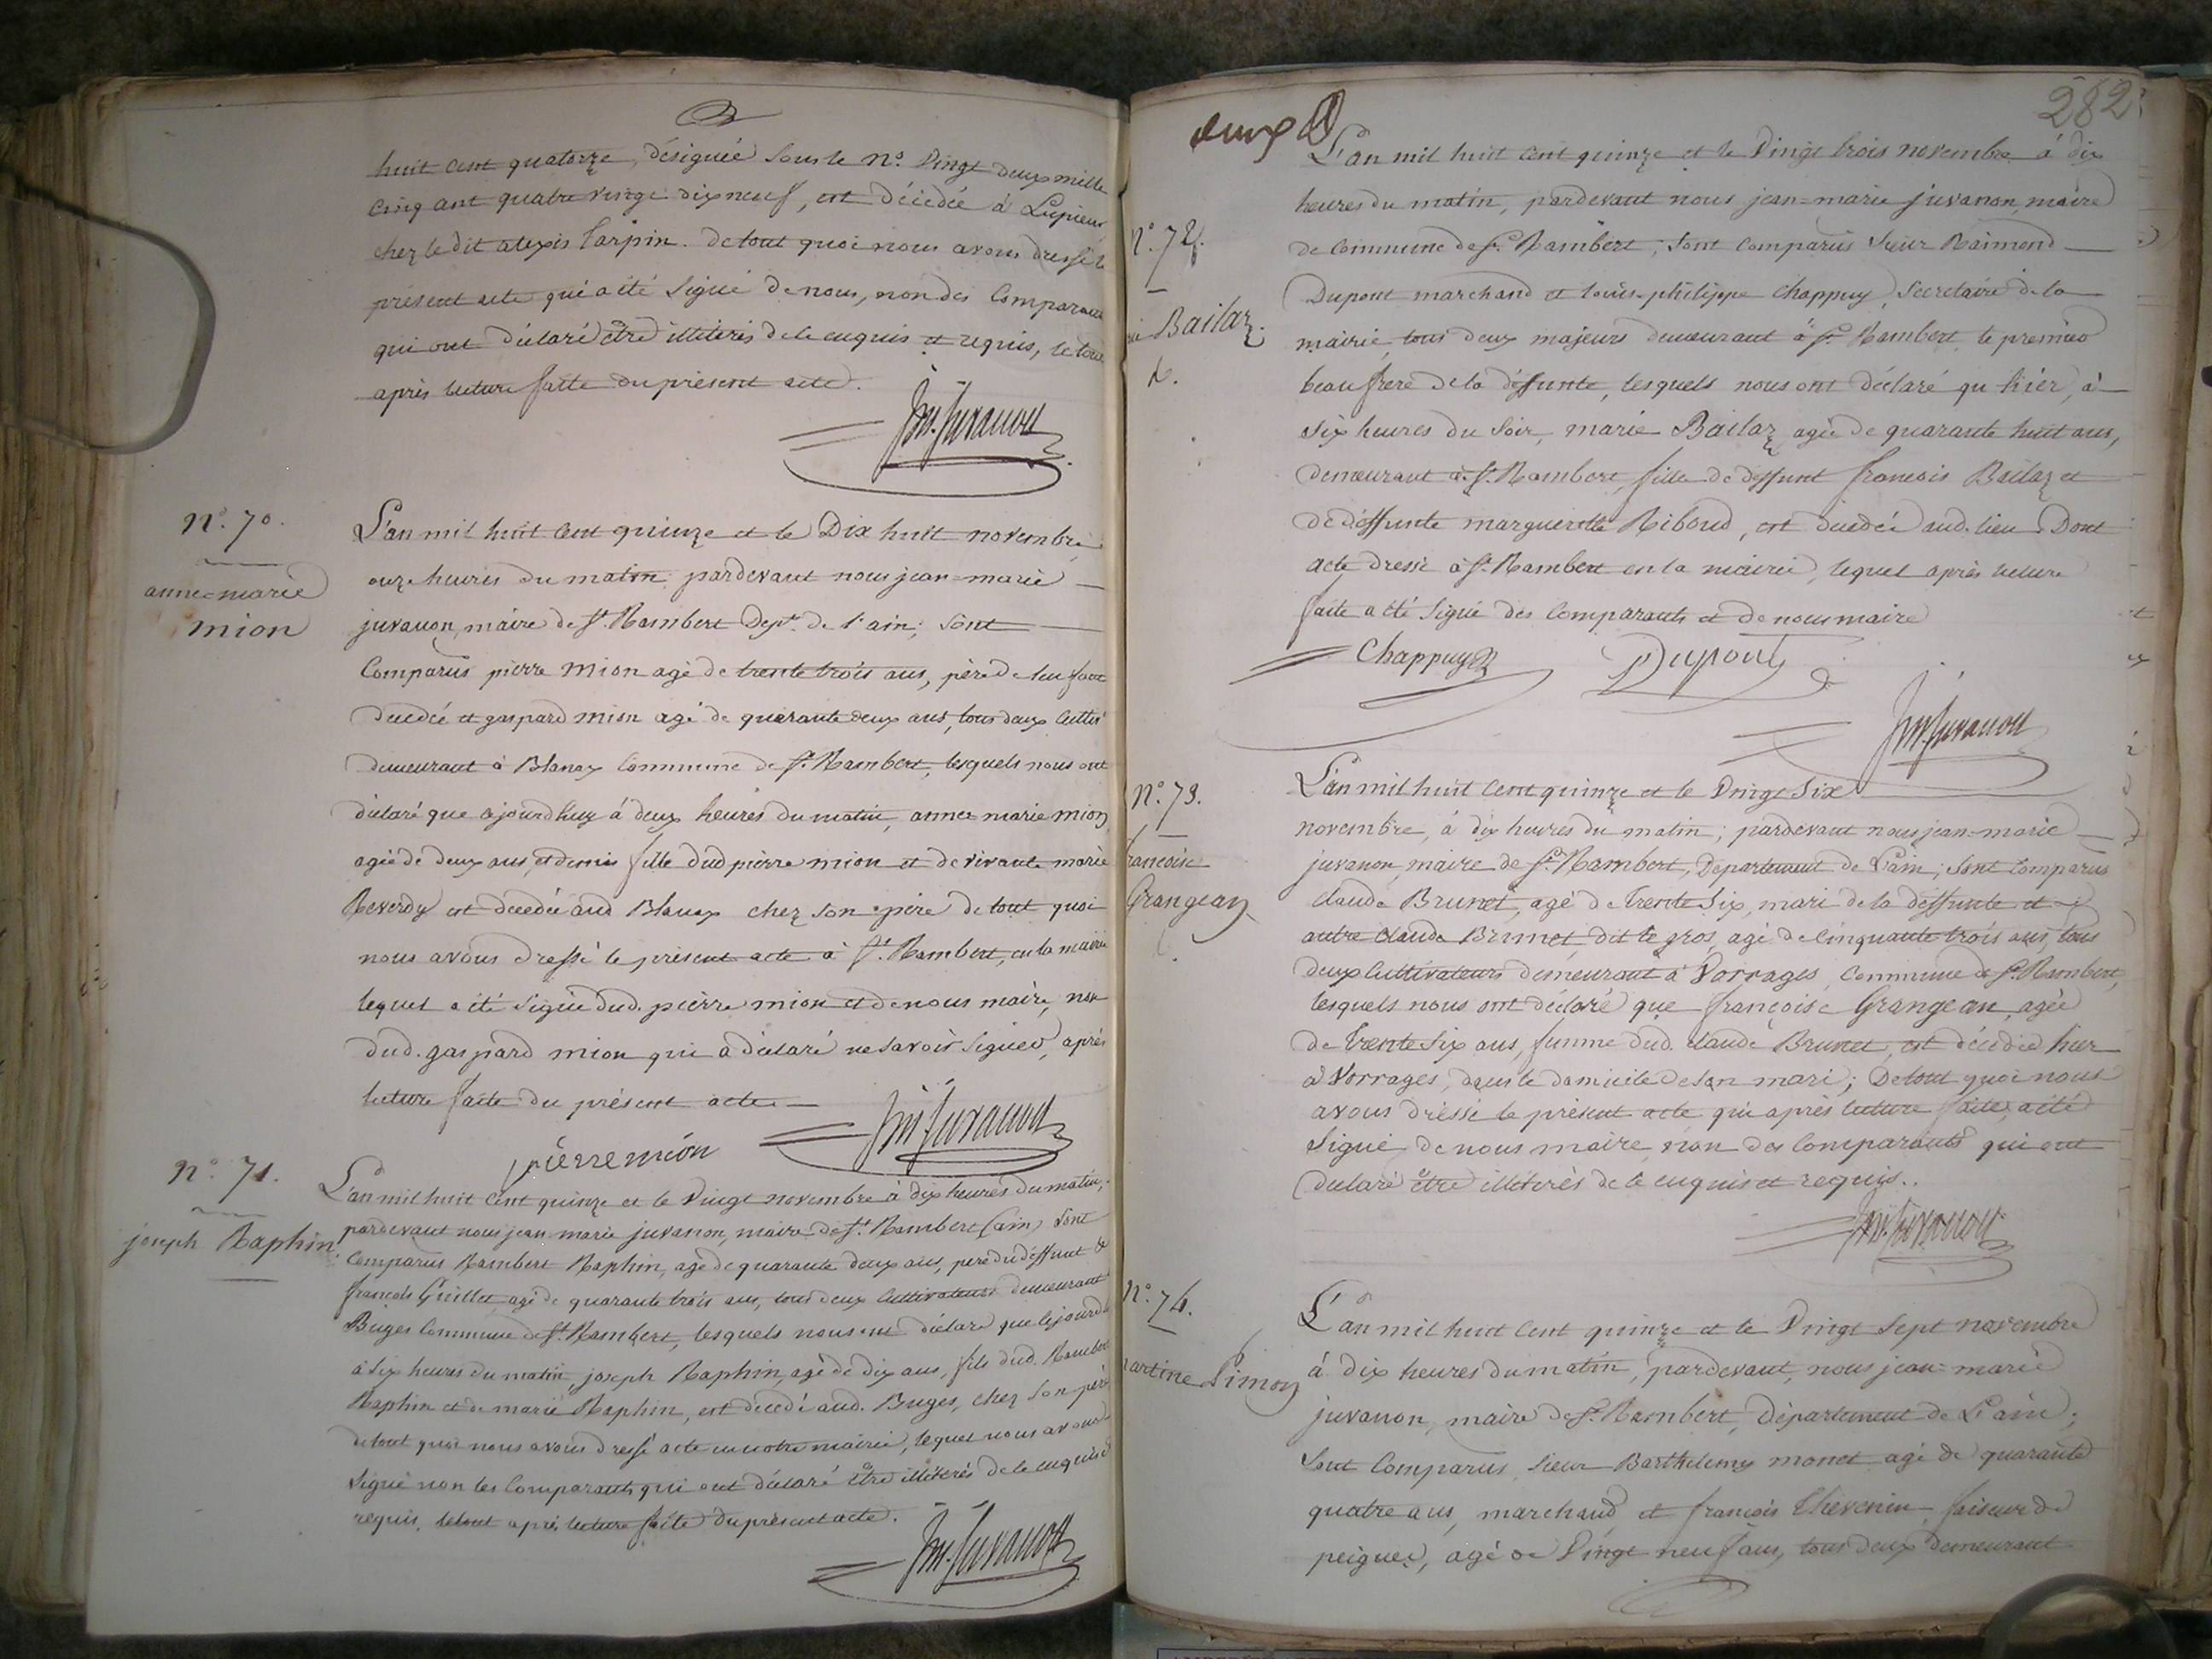 huit cent quatorze, désignée sous le n.° vingt deux mille
cinq ant quatre vingt dix neuf, est décédée à Lupieu
chez le dit alexis Tarpin. de tout quoi nous avons dressé le
présent acte qui a été signé de nous, non des Comparants
qui ont déclaré être illiterés de le enquis et requis, le tout
après lecture faitte du présent acte.
Jm. Juvanon
n.° 70.
anne=marie
mion
L'an mil huit cent quinze et le Dix huit novembre
onze heures du matin pardevant nous jean=marie
juvanon, maire de St. Rambert Dept. de l'ain; sont
Comparus pierre mion agé de trente trois ans, père de l'enfant
décédé et gaspard mion agé de quarante deux ans, tous deux cultivrs
demeurant à Blanaz commune de St. Rambert, lesquels nous ont
déclaré que ajourdhuy à deux heures du matin, anne=marie mion,
agée de deux ans et demie fille dud pierre mion et de vivante marie
Reverdy est décédée aud Blanaz chez son père de tout quoi
nous avons dressé le présent acte à St. Rambert, en la mairie
lequel a été signé dud. pierre mion et de nous maire, non
dud. gaspard mion qui a déclaré ne savoir signer, après
lecture faite du présent acte
pierre mion
Jm. Juvanon
n.° 71.
joseph Raphin
L'an mil huit cent quinze et le vingt novembre à dix heures du matin;
pardevant nous jean marie juvanon, maire de St. Rambert (ain) sont
comparus Rambert Raphin, agé de quarante deux ans, pere du déffunt &
francois Guillet agé de quarante trois ans, tous deux cultivateurs demeurant
Buges commune de St. Rambert, lesquels nous ont déclaré que le jourd
à six heures du matin, joseph Raphin, agé de dix ans, fils dud. Rambert
Raphin et de marie Raphin, est décédé aud. Buges, chez son père
de tout quoi nous avons dressé acte en notre mairie, lequel nous avons
signé non les Comparants qui ont déclaré être illiterés de le enquis &
requis, le tout après lecture faite du présent acte.
Jm. Juvanon
282
L'an mil huit cent quinze et le vingt trois novembre à dix
heures du matin, pardevant nous jean=marie juvanon, maire
n.° 72.
de commune de St. Rambert; sont comparus sieur Raimond
Dupont marchand et louis-philippe Chappuy, secretaire de la
Bailaz.
mairie, tous deux majeurs demeurant à St. Rambert, le premier
beau frere de la déffunte, lesquels nous ont déclaré qu'hier, à
six heures du soir, marie Bailaz agée de quarante huit ans,
demeurant à St. Rambert, fille de déffunt francois Bailaz et
de déffunte marguerette Riboud, est décédée aud. lieu Dont
acte dressé à St. Rambert en la mairie, lequel après lecture
faite a été signé des comparants et de nous maire
Chappuy
Dupont
Jm. Juvanon
n.° 73.
francoise
Grangean
L'an mil huit cent quinze et le vingt six
novembre, à dix heures du matin; pardevant nous jean=marie
juvanon, maire de St. Rambert, Département de l'ain; sont comparus
claude Brunet, agé de trente six, mari de la déffunte et
autre claude Brunet, dit le gros, agé de cinquante trois ans, tous
deux cultivateurs demeurant à Vorrages, commune de St. Rambert,
lesquels nous ont déclaré que françoise Grangean, agée
de trente six ans, femme dud. claude Brunet, est décédée hier
à Vorrages, dans le domicile de son mari; De tout quoi nous
avons dressé le présent acte qui après lecture faite, a été
signé de nous maire, non des comparants qui ont
déclaré être illiterés de le enquis et requis..
Jm. Juvanon
n.° 74.
martine Simon
L'an mil huit cent quinze et le vingt sept novembre
à dix heures du matin, pardevant, nous jean=marie
juvanon, maire de St. Rambert, Département de L'ain;
sont comparus sieur Barthelemy monet agé de quarante
quatre ans, marchand et françois Thevenin, faiseur de
peignes, agé de vingt neuf ans, tous deux demeurant